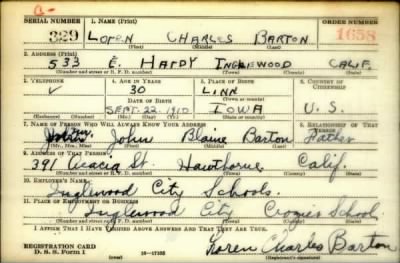 a-
SERIAL NUMBER 1. NAME (Print) ORDER NUMBER
329 LOREN CHARLES BARTON 1658
(First) (Middle) (Last)
2. ADDRESS (Print)
533 E. HARDY INGLEWOOD CALIF.
(Number and street or R. F. D. number) (Town) (County) (State)
3. TELEPHONE 4. AGE IN YEARS 5. PLACE OF BIRTH 6. COUNTRY OF CITIZENSHIP
✓ 30 LINN
DATE OF BIRTH (Town or county)
SEPT. 22-1910 IOWA U. S.
(Mo.) (Day) (Yr.) (State or country)
7. NAME OF PERSON WHO WILL ALWAYS KNOW YOUR ADDRESS 8. RELATIONSHIP OF THAT PERSON
John Blaine Barton Father
(Mr., Mrs., Miss) (First) (Middle) (Last)
9. ADDRESS OF THAT PERSON
391 Acacia St. Hawthorne Calif.
(Number and street or R. F. D. number) (Town) (County) (State)
10. EMPLOYER'S NAME
Inglewood City Schools.
11. PLACE OF EMPLOYMENT OR BUSINESS
Inglewood City Crozier School.
(Number and street or R. F. D. number) (Town) (County) (State)
I AFFIRM THAT I HAVE VERIFIED ABOVE ANSWERS AND THAT THEY ARE TRUE.
REGISTRATION CARD
D. S. S. Form 1 16—17105 Loren Charles Barton
(Registrant's signature)